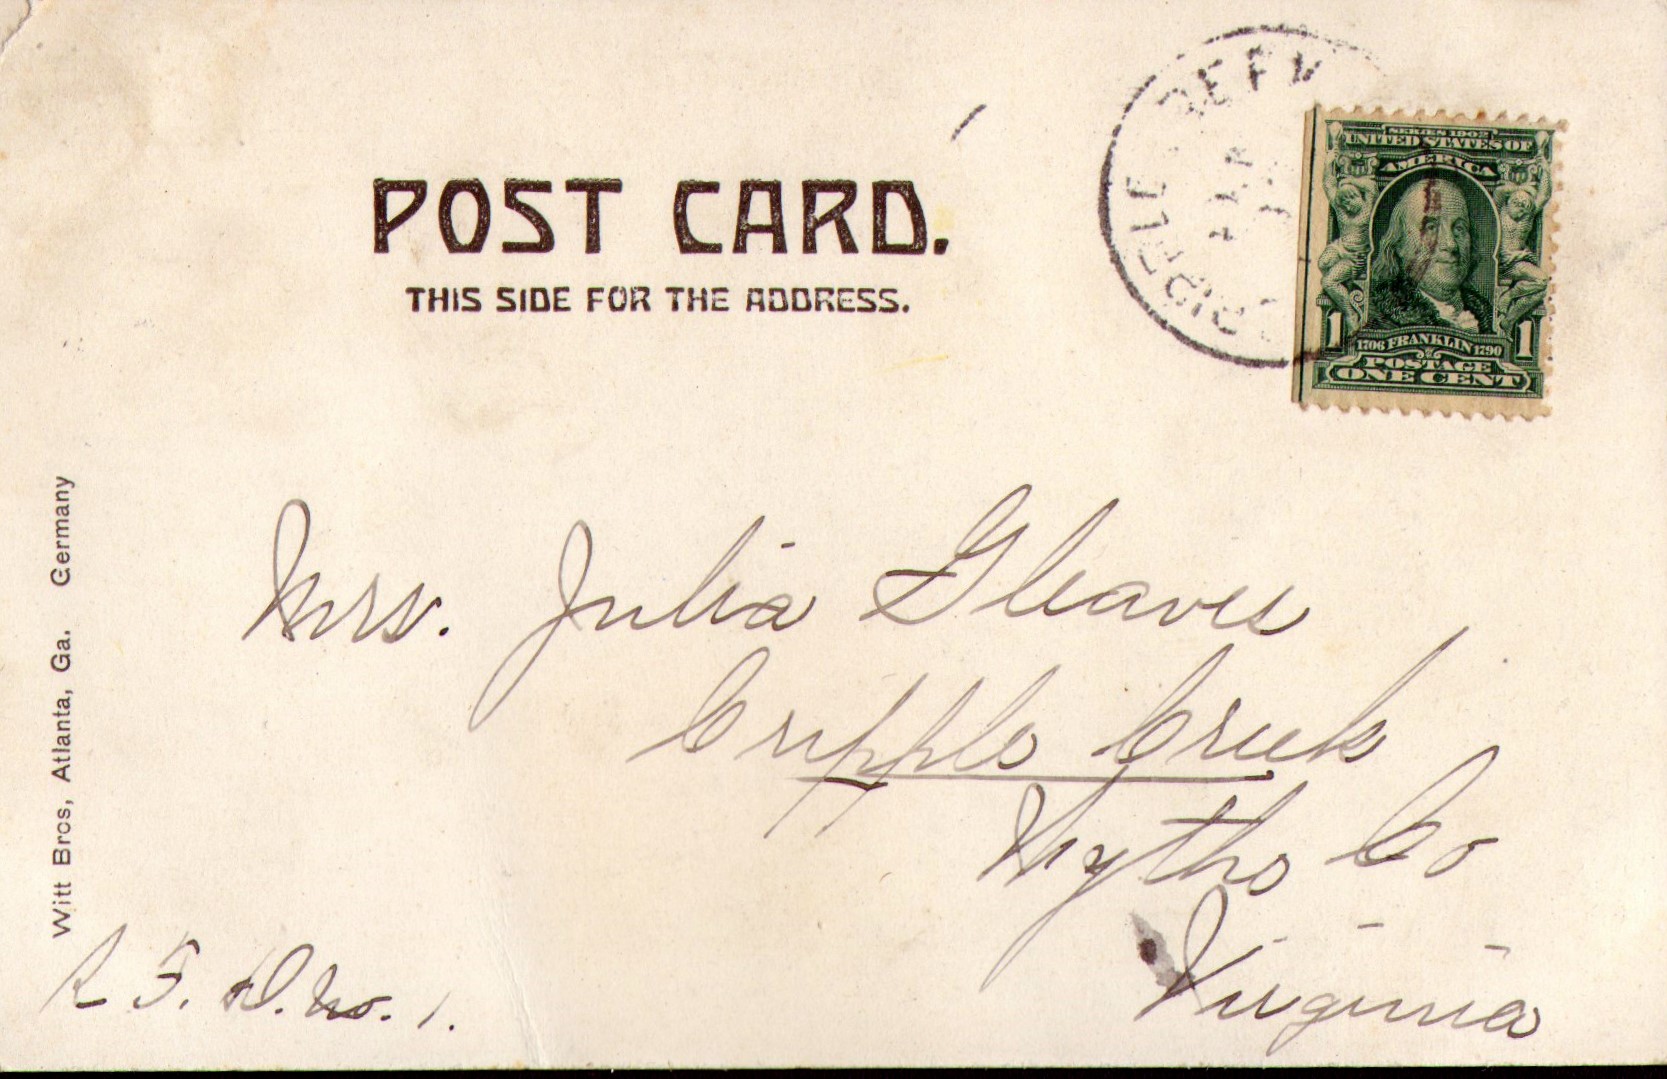 POST CARD.
THIS SIDE FOR THE ADDRESS.
SERIES 1902
UNITED STATES OF
AMERICA
1 1706 FRANKLIN 1790 1
POSTAGE
ONE CENT
Mrs. Julia Gleaves
Cripple Creek
Wythe Co
Virginia
R F. D. No. 1.
Witt Bros, Atlanta, Ga. Germany